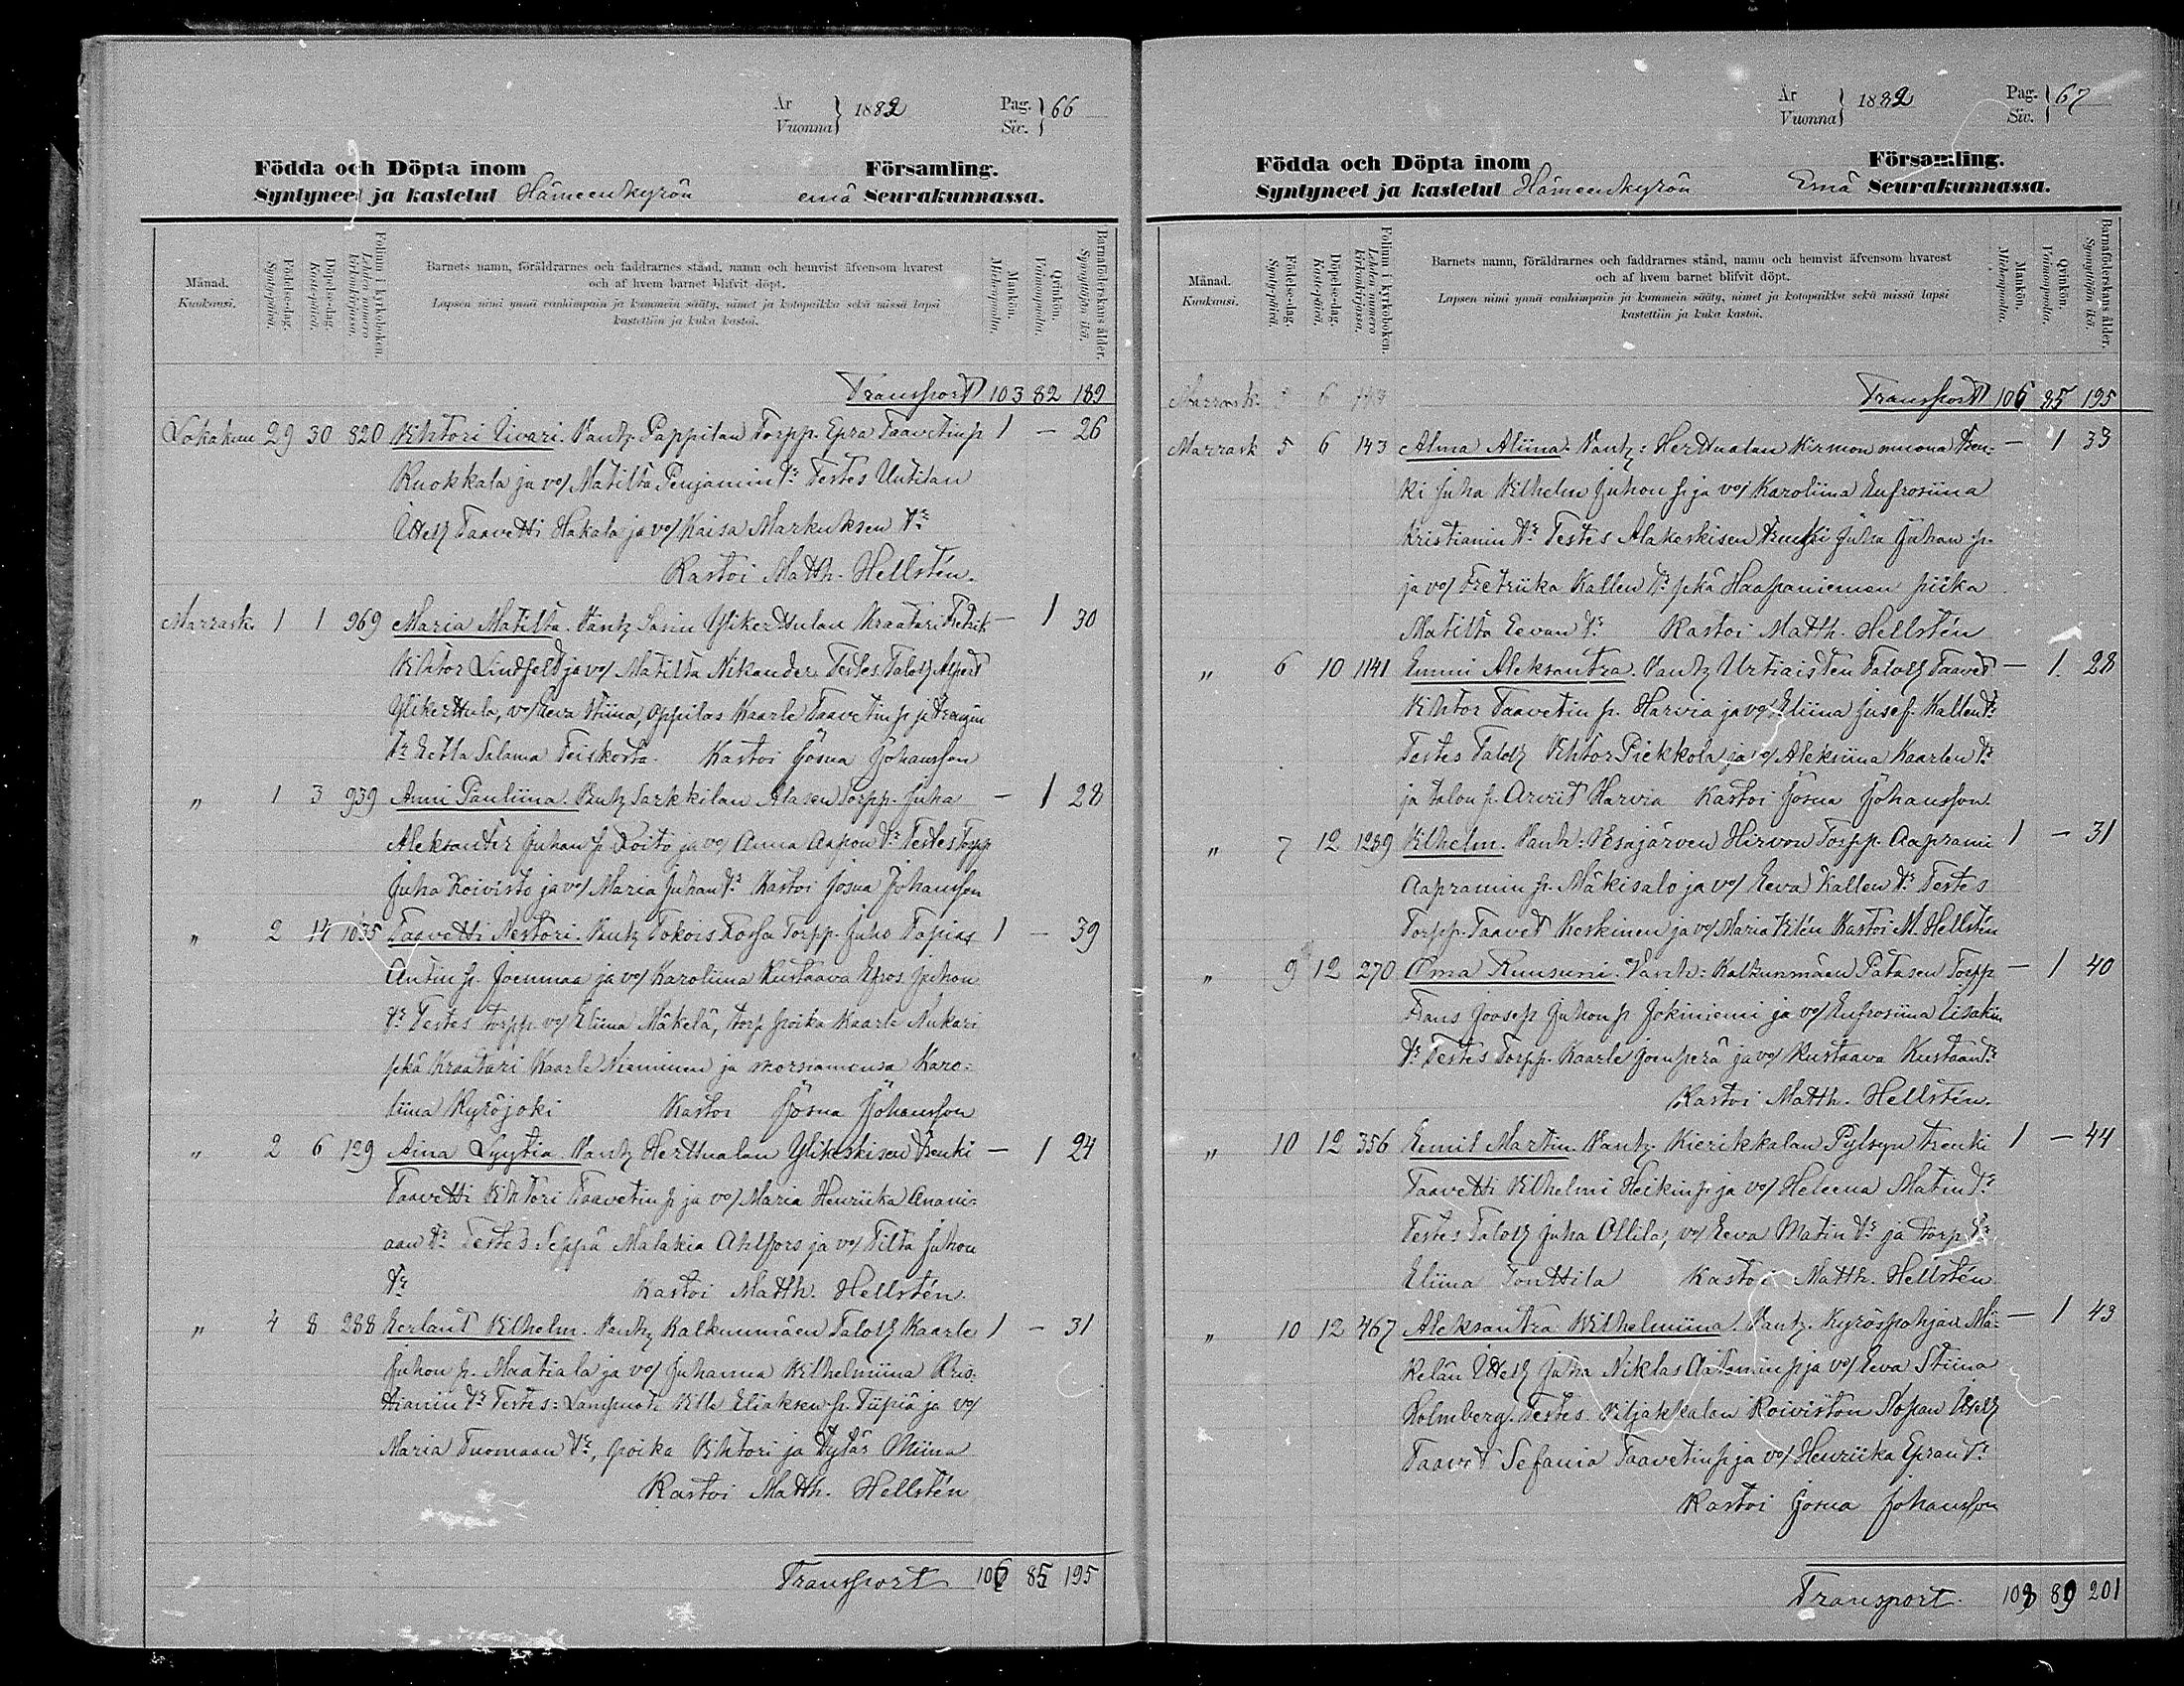 År
Vuonna } 1882 Pag.
Siv. } 66
Födda och Döpta inom Församling.
Syntyneet ja kastetut Hämeenkyrön emä Seurakunnassa.
Månad.
Kuukausi.
Födelse-dag.
Syntypäivä.
Döpelse-dag.
Kastepäivä.
Folium i kyrkoboken.
Lehden numero kirkonkirjassa.
Barnets namn, föräldrarnes och faddrarnes stånd, namn och hemvist äfvensom hvarest
och af hvem barnet blifvit döpt.
Lapsen nimi ynnä vanhimpain ja kummein sääty, nimet ja kotopaikka sekä missä lapsi
kastettiin ja kuka kastoi.
Mankön.
Miehenpuolia.
Qvinkön.
Vaimonpuolia.
Barnaföderskans ålder.
Synnyttäjän ikä.
Transport 103 82 189
Lokakuu 29 30 820 Vihtori Iivari. Vanh. Pappilan Torpp. Epra Taavetinp 1 — 26
Ruokkala ja vo/ Matilta Penjamin tr Testes Uutilan
Itell Taavetti Hakala ja vo/ Kaisa Markuksen tr
Kastoi Matth. Hellstén.
Marrask. 1 1 969 Maria Matilta. Vanh. Sasin Ylikerttulan Kraatari Fretrik — 1 30
Vihtor Lindfelt ja vo/ Matilta Nikander. Testes. Taloll. Alpert
Ylikerttula, vo/ Eeva Stiina, oppilas Kaarle Taavetin p ja
tr Eetla Salama Feiskorta. Kastoi Josua Johansson
„ 1 3 939 Anni Pauliina. Vanh. Sarkkilan Alasen Torpp. Juha — 1 28
Aleksanter Juhan p Koito ja vo/ Anna Aapon tr Testes Torpp
Juha Koivisto ja vo/ Maria Juhan tr Kastoi Josua Johansson
„ 2 12 1035 Taavetti Nestori. Vanh. Tokois Torpp. Juho Tapias 1 — 39
Antin p. Joenmaa ja vo/ Karoliina Kustaava Efros. Juhon
tr Testes torpp. vo/ Eliina Mäkelä, torp poika Kaarle Nukari
sekä Kraatari Kaarle Nieminen ja morsiamensa Karo-
liina Kyröjoki Kastoi Josua Johansson
„ 2 6 129 Aina Lyytia. Vanh. Herttualan Ylikeskisen Trenki — 1 24
Taavetti Vihtori Taavetin p ja vo/ Maria Henriika Anani-
aan tr Testes Seppä Malakia Ahlfors ja vo/ Tilta Juhon
tr Kastoi Matth. Hellstén.
„ 4 8 288 Eerlant Vilhelm. Vanh. Kalkunmäen Taloll. Kaarle 1 — 31
Juhon p. Maatiala ja vo/ Juhanna Vilhelmiina Kris-
tianin tr Testes: Lampuoti Ville Eliaksen p. Tiipiä ja vo/
Maria Tuomaan tr, poika Vihtori ja tytär Miina
Kastoi Matth. Hellstén
Transport 106 85 195
År
Vuonna } 1882 Pag.
Siv. } 67
Födda och Döpta inom Församling.
Syntyneet ja kastetut Hämeenkyrön Emä Seurakunnassa.
Månad.
Kuukausi.
Födelse-dag.
Syntypäivä.
Döpelse-dag.
Kastepäivä.
Folium i kyrkoboken.
Lehden numero kirkonkirjassa.
Barnets namn, föräldrarnes och faddrarnes stånd, namn och hemvist äfvensom hvarest
och af hvem barnet blifvit döpt.
Lapsen nimi ynnä vanhimpain ja kummein sääty, nimet ja kotopaikka sekä missä lapsi
kastettiin ja kuka kastoi.
Mankön.
Miehenpuolia.
Qvinkön.
Vaimonpuolia.
Barnaföderskans ålder.
Synnyttäjän ikä
Marrask. 5 6 143 Transport 106 85 195
Marrask 5 6 143 Alma Aliina. Vanh: Herttualan Kirmon muona tren- — 1 33
ki Juha Vilhelm Juhon p ja vo/ Karoliina Eufrosiina
Kristianin tr Testes Alakeskisen trenki Juha Juhan p.
ja vo/ Fretriika Kallen tr sekä Haapaniemen piika
Matilta Eevan tr Kastoi Matth. Hellstén
„ 6 10 1141 Emmi Aleksantra. Vanh. Urtiaisten Taloll Taavet — 1. 28
Vihtor Taavetin p. Harvia ja vo/ Eliina Jusef. Kallen tr
Testes Taloll Vihtor Piekkola ja vo/ Aleksiina Kaarlen tr
ja talon p. Arviit Harvia Kastoi Josua Johansson.
„ 7 12 1289 Vilhelm. Vanh: Vesajärven Hirvon Torpp. Aaprami 1 — 31
Aapramin p. Mäkisalo ja vo/ Eeva Kallen tr Testes
Torpp. Taavet Keskinen ja vo/ Maria Vilén Kastoi M. Hellstén
„ 9 12 270 Oma Ruusuni. Vanh: Kalkunmäen Patasen Torpp — 1 40
Frans Joosep Juhon p Jokiniemi ja vo/ Eufrosiina Iisakin
tr Testes Torpp. Kaarle Joenperä ja vo/ Kustaava Kustaan tr
Kastoi Matth. Hellstén.
„ 10 12 356 Eemil Martin. Vanh. Kierikkalan Pylsyn trenki 1 — 44
Taavetti Vilhelmi Heikin p ja vo/ Heleena Matin tr
Testes Taloll Juha Ollila, vo/ Eeva Matin tr ja torp tr
Eliina Tonttila Kastoi Matth. Hellstén
„ 10 12 467 Aleksantra Vilhelmiina. Vanh. Kyröspohjan Mä- — 1 43
kelän Itell Juha Niklas Aatamin p ja vo/ Eeva Stiina
Holmberg. Testes. Viljakkalan Koiviston Itell
Taavet Sefania Taavetin p ja vo/ Henriika Epran tr
Kastoi Josua Johansson
Transport. 108 89 201